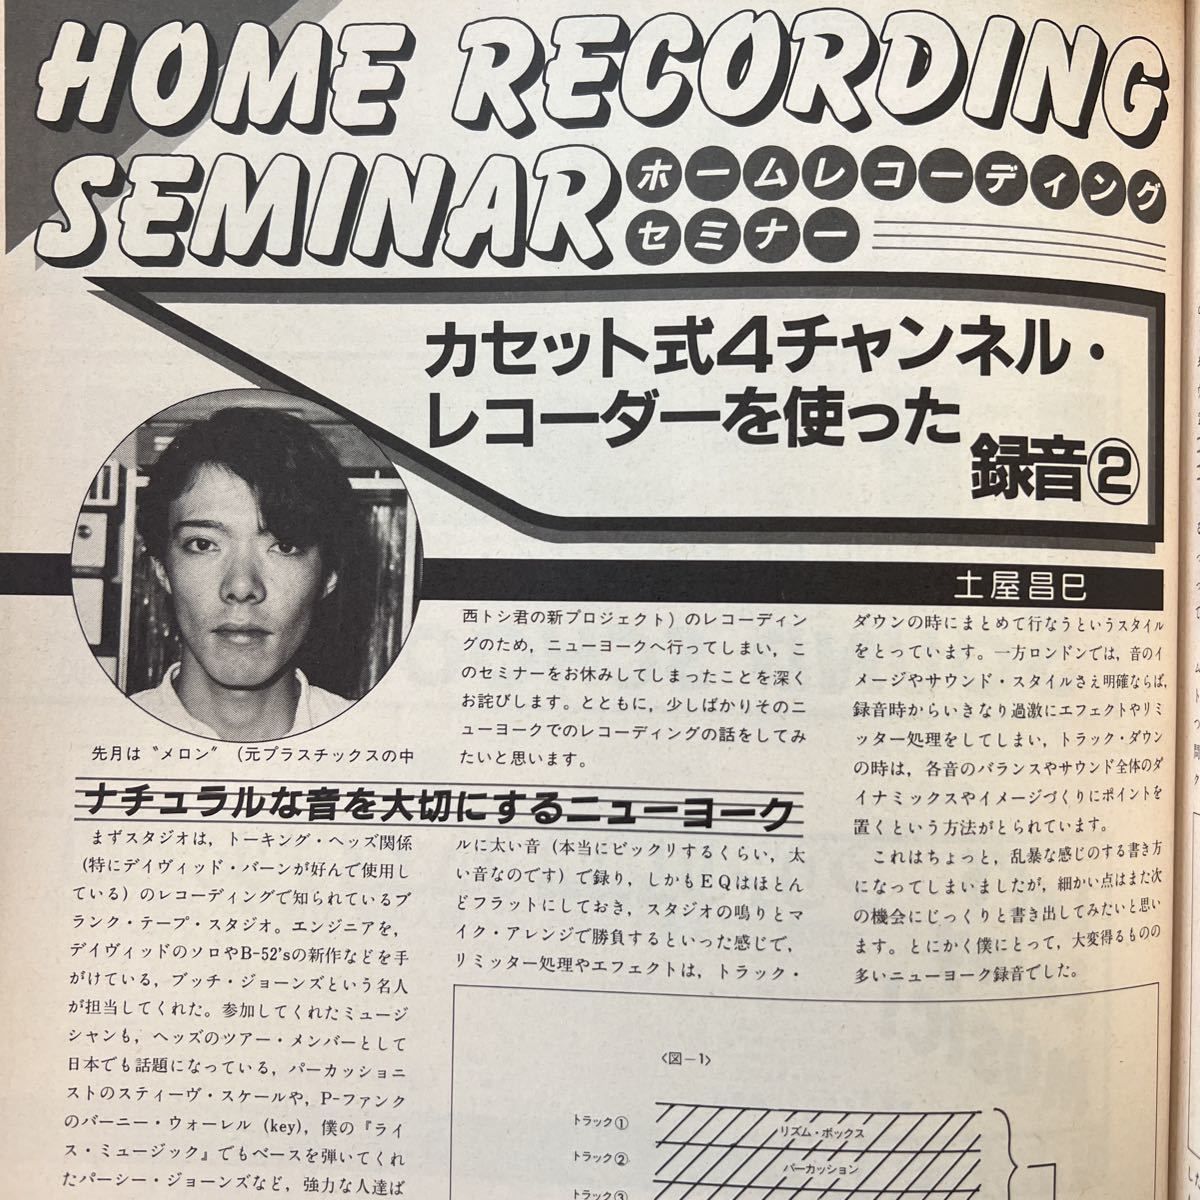 HOME RECORDING
SEMINAR
ホームレコーディング
セミナー
カセット式4チャンネル・
レコーダーを使った
録音②
土屋昌巳
先月は〝メロン〟(元プラスチックスの中
西トシ君の新プロジェクト)のレコーディン
グのため,ニューヨークへ行ってしまい,こ
のセミナーをお休みしてしまったことを深く
お詫びします。とともに,少しばかりそのニ
ューヨークでのレコーディングの話をしてみ
たいと思います。
ナチュラルな音を大切にするニューヨーク
まずスタジオは,トーキング・ヘッズ関係
(特にデイヴィッド・バーンが好んで使用し
ている)のレコーディングで知られているブ
ランク・テープ・スタジオ。エンジニアを,
デイヴィッドのソロやB-52'sの新作などを手
がけている,ブッチ・ジョーンズという名人
が担当してくれた。参加してくれたミュージ
シャンも,ヘッズのツアー・メンバーとして
日本でも話題になっている,パーカッショニ
ストのスティーヴ・スケールや,P-ファンク
のバーニー・ウォーレル(key),僕の『ライ
ス・ミュージック』でもベースを弾いてくれ
たパーシー・ジョーンズなど,強力な人達ば
ルに太い音(本当にビックリするくらい,太
い音なのです)で録り,しかもEQはほとん
どフラットにしておき,スタジオの鳴りとマ
イク・アレンジで勝負するといった感じで,
リミッター処理やエフェクトは,トラック・
ダウンの時にまとめて行なうというスタイル
をとっています。一方ロンドンでは,音のイ
メージやサウンド・スタイルさえ明確ならば,
録音時からいきなり過激にエフェクトやリミ
ッター処理をしてしまい,トラック・ダウン
の時は,各音のバランスやサウンド全体のダ
イナミックスやイメージづくりにポイントを
置くという方法がとられています。
これはちょっと,乱暴な感じのする書き方
になってしまいましたが,細かい点はまた次
の機会にじっくりと書き出してみたいと思い
ます。とにかく僕にとって,大変得るものの
多いニューヨーク録音でした。
〈図-1〉
トラック①
リズム・ボックス
トラック②
パーカッション
トラック③